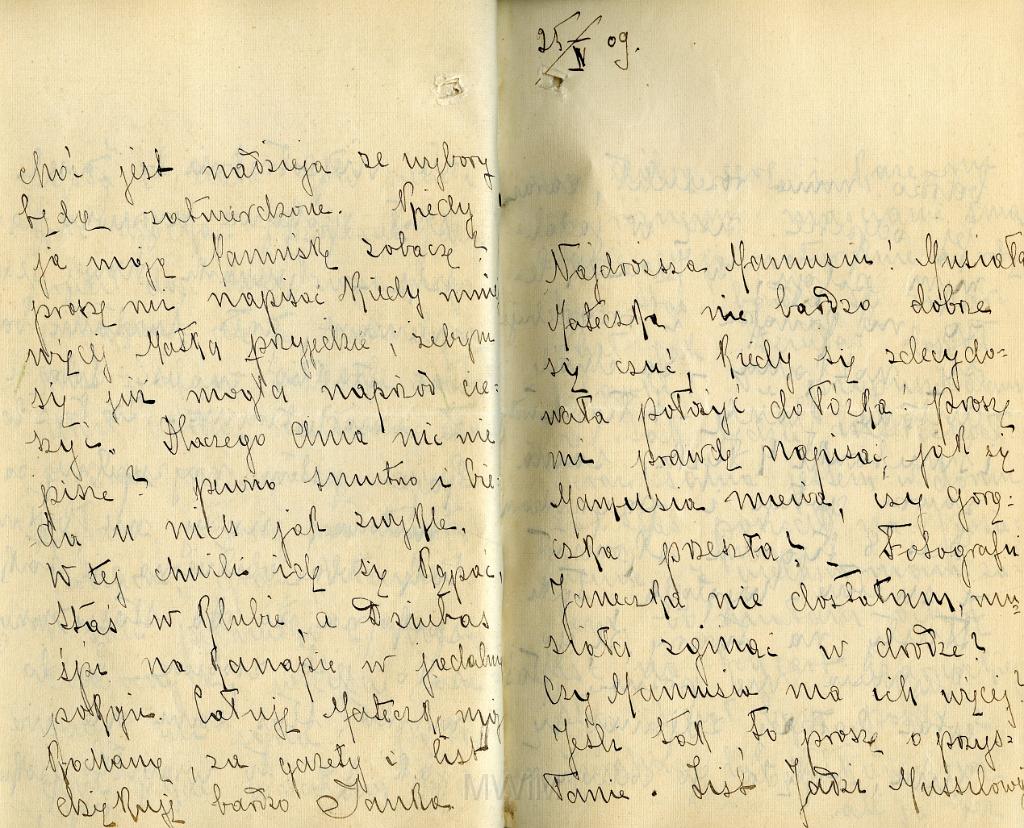 choć jest nadzieja ze wybory
będą zatwierdzone. Kiedy
ja moją Mamuskę zobaczę?
proszę mi napisać kiedy mniej
więcej Matka przyjedzie, zebym
się już mogła naprzód cie-
szyć. Dlaczego Ania nic nie
pisze? pewno smutno i bie-
da u nich jak zwykle.
W tej chwili idę się kąpać,
Staś w klubie, a Dziubas
śpi na kanapie w jadalnym
pokoju. Całuję Mateczkę moją
kochaną, za gazety i list
dziękuję bardzo Janka
25/IV 09.
Najdrozsza Mamusiu! Musiała
Mateczka nie bardzo dobrze
się czuć, kiedy się zdecydo=
wała połozyć do łózka. Proszę
mi prawdę napisać, jak się
Mamusia miewa, czy gorą=
czka przeszła? Fotografii
Janeczka nie dostałam, mu=
siała zginąć w drodze?
Czy Mamusia ma ich więcej?
Jeśli tak, to proszę o przys=
łanie. List Jadzi Mussilowej
MWiM